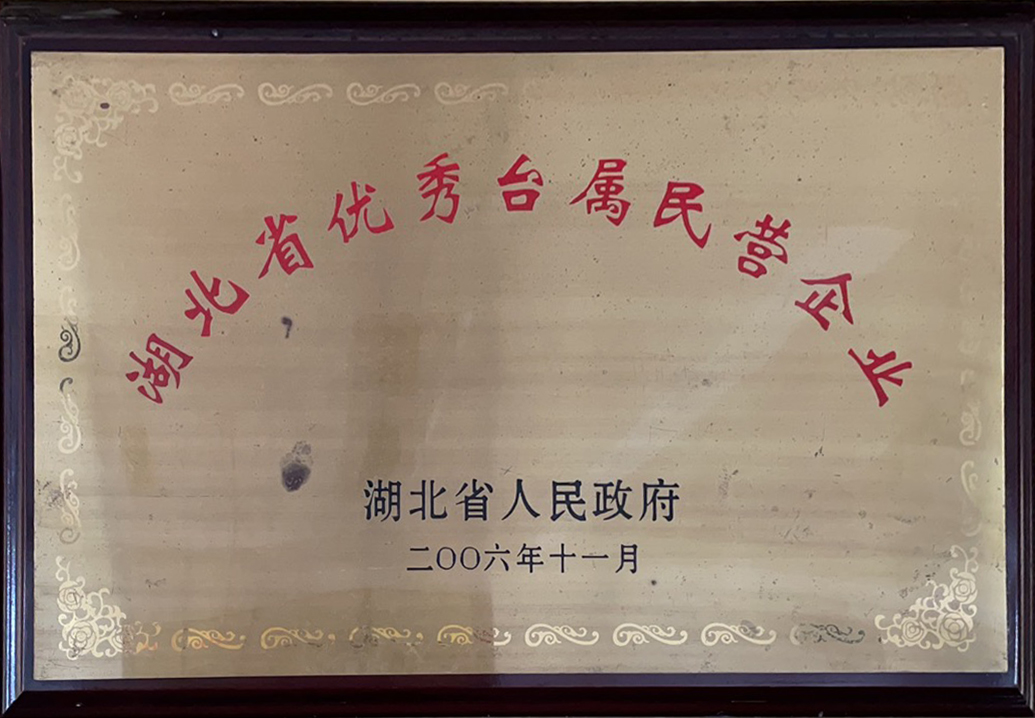 湖北省优秀台属民营企业
湖北省人民政府
二〇〇六年十一月